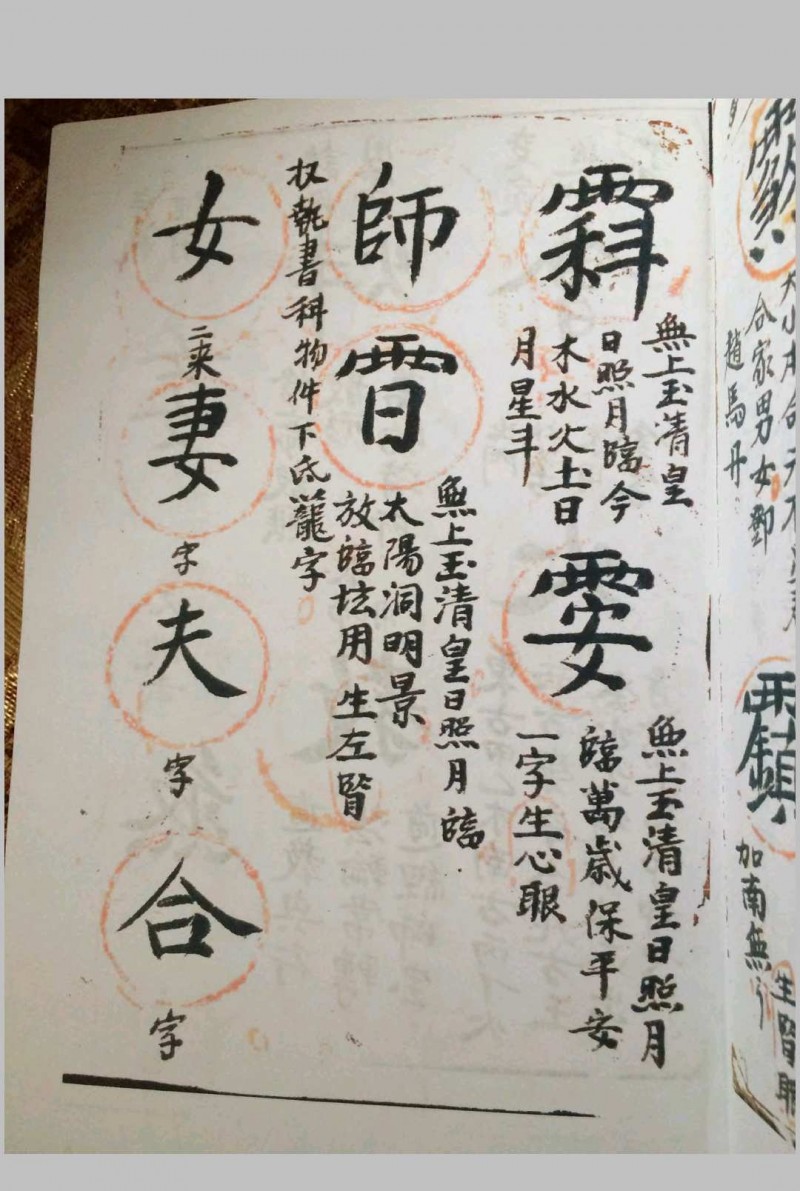 合家男女鄧
趙馬丹
加南無
⿱雨科
無上玉清皇
日照月臨今
木水火土日
月星斗
⿱雨安
無上玉清皇日照月
臨萬歲保平安
一字生心眼
師
⿱雨日
無上玉清皇日照月臨
太陽洞明景
放臨坛用 生左腎
权執書科物件下氐籠字
女
二来
妻
字
夫
字
合
字